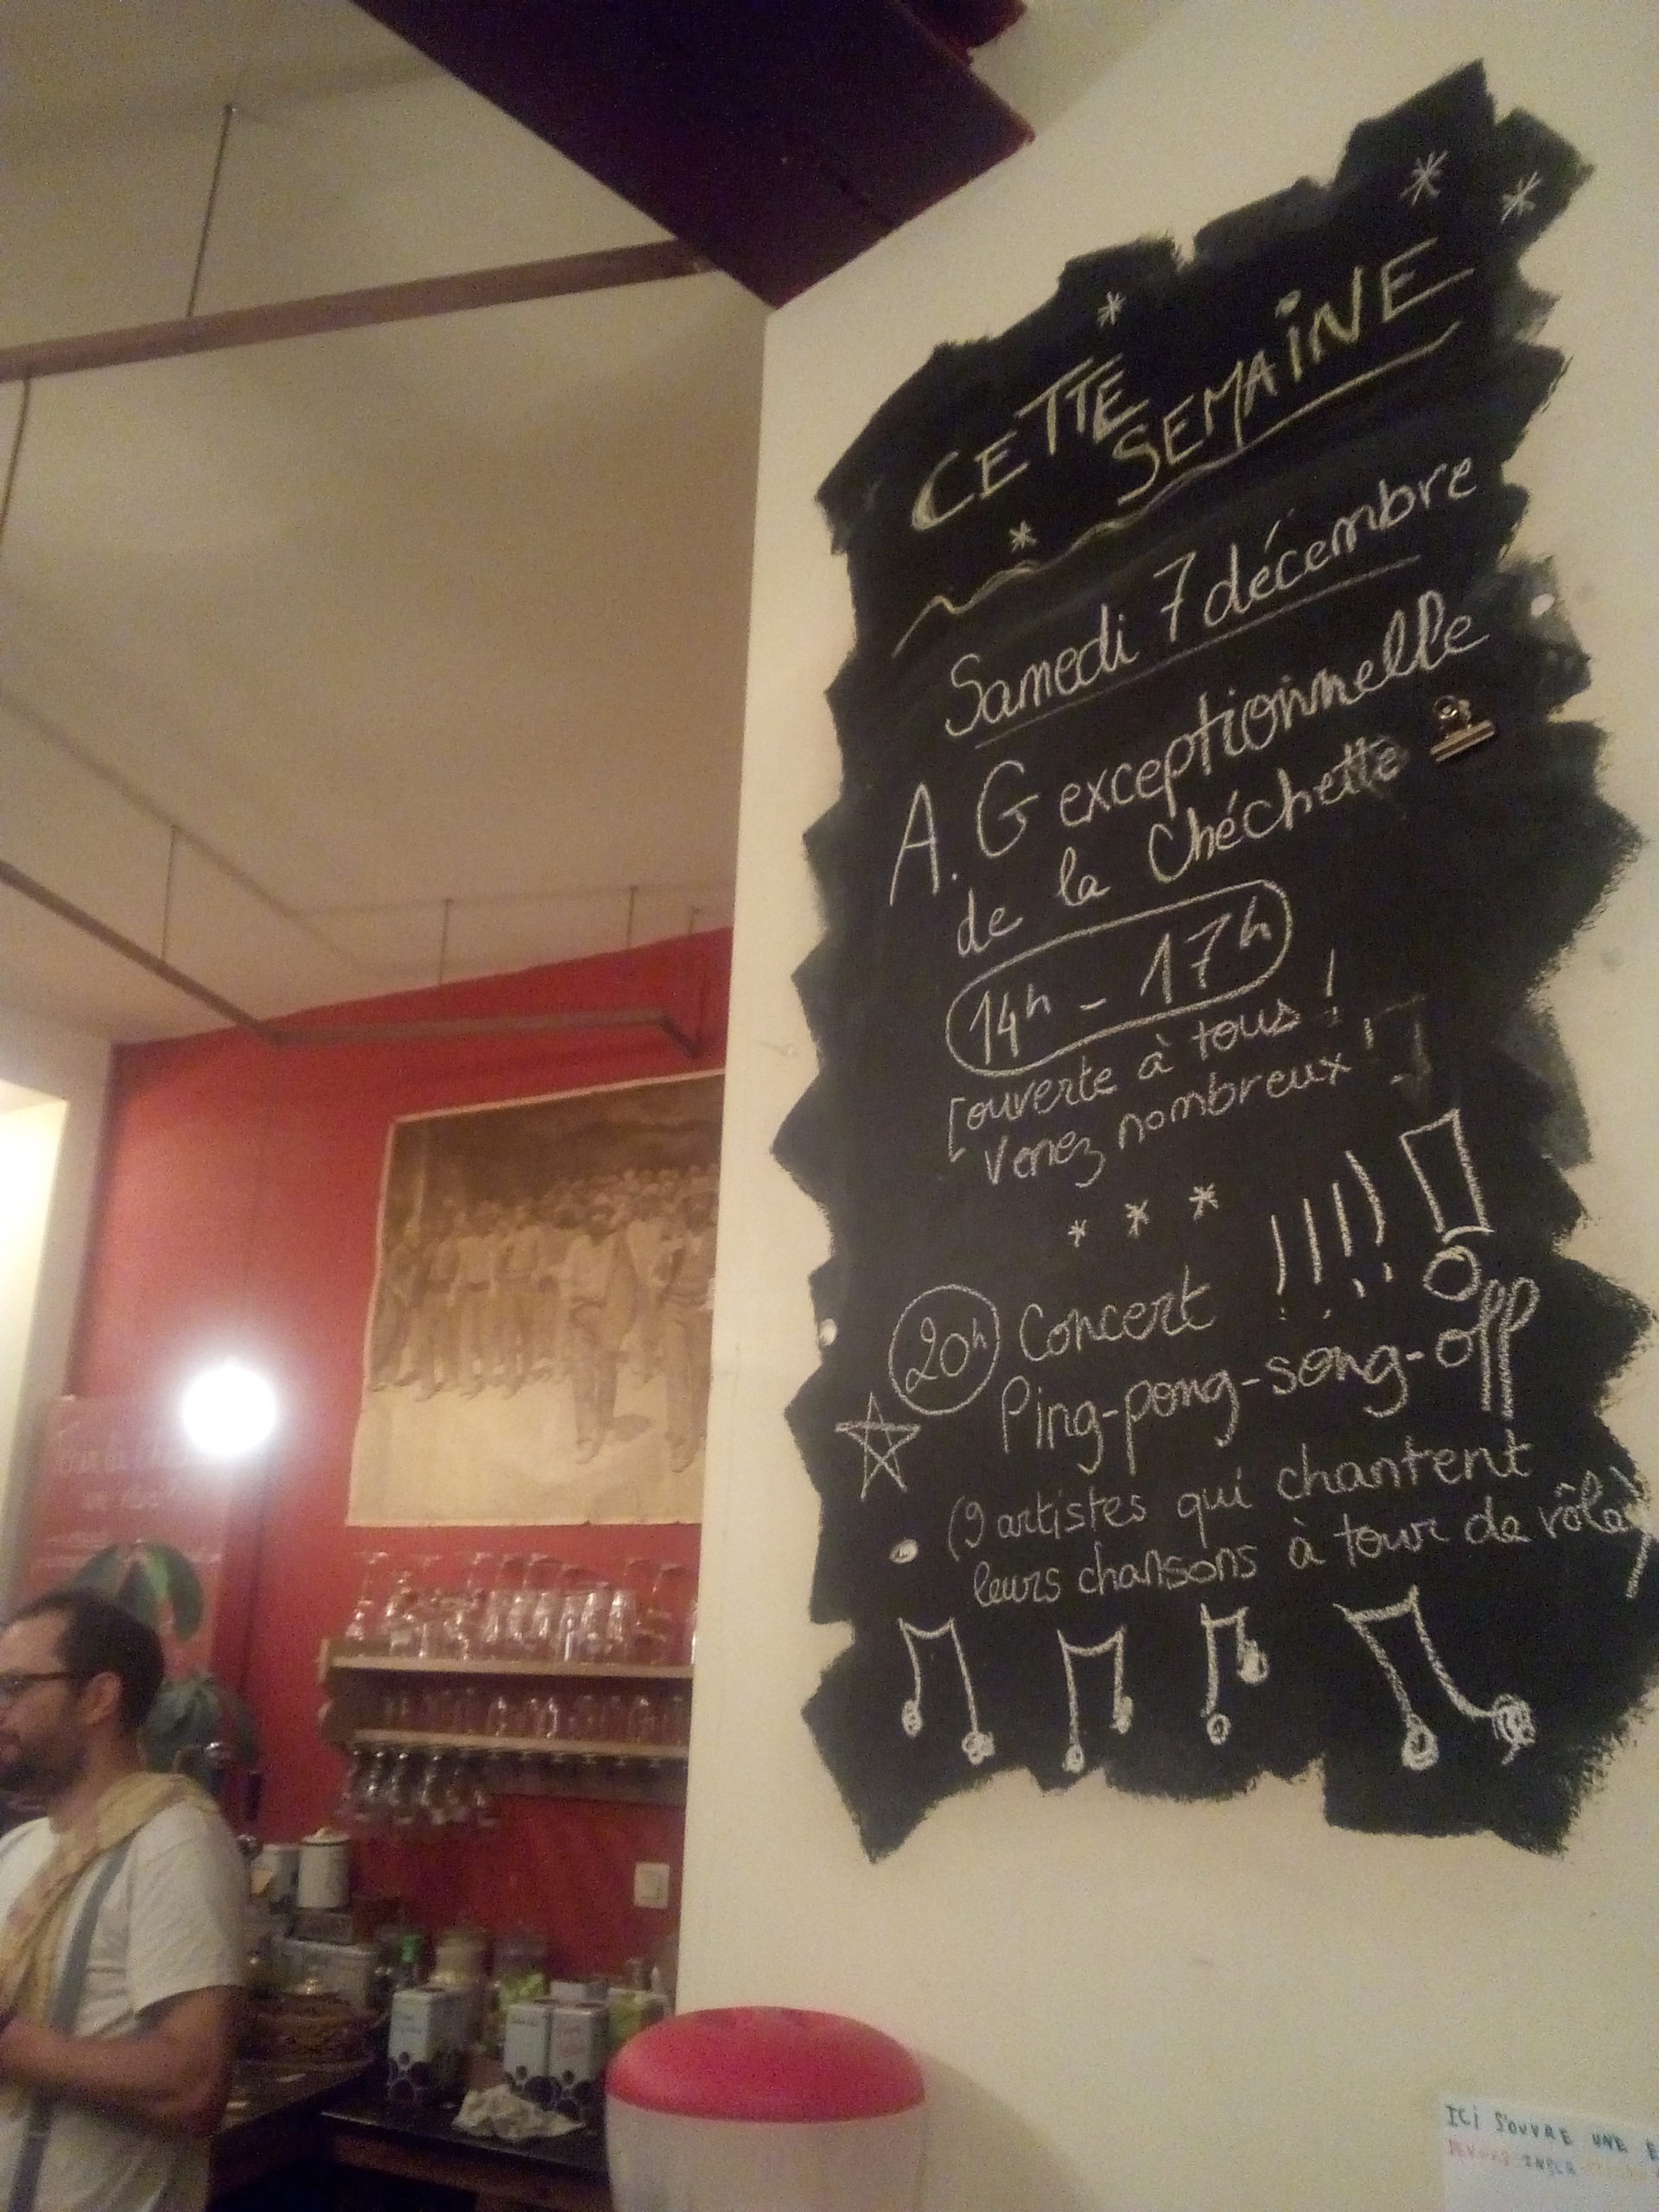 CETTE
SEMAINE
Samedi 7 décembre
A.G exceptionnelle
de la Chéchette
14h - 17h
[ouverte à tous !
Venez nombreux !]
20h Concert !!!!!
Ping-pong-song-off
(9 artistes qui chantent
leurs chansons à tour de rôle)
ICI S'OUVRE UNE